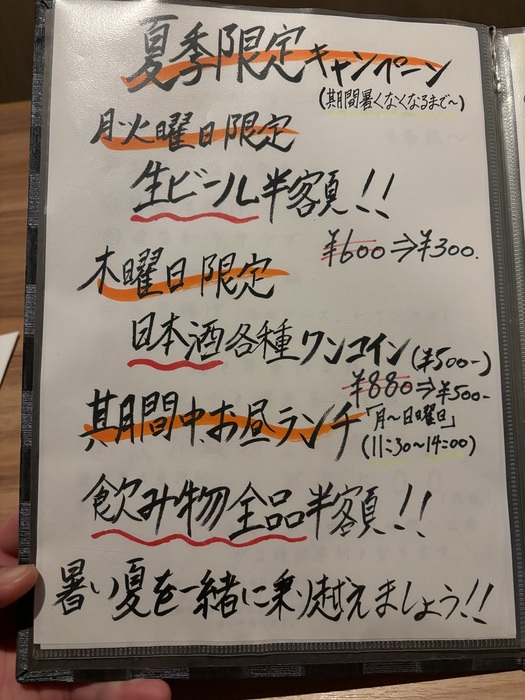 夏季限定キャンペーン
(期間暑くなくなるまで〜)
月・火曜日限定
生ビール半額!!
¥600⇒¥300.
木曜日限定
日本酒各種ワンコイン(¥500-)
¥880⇒¥500-
期間中、お昼ランチ「月〜日曜日」
(11:30〜14:00)
飲み物全品半額!!
暑い夏を一緒に乗り越えましょう!!